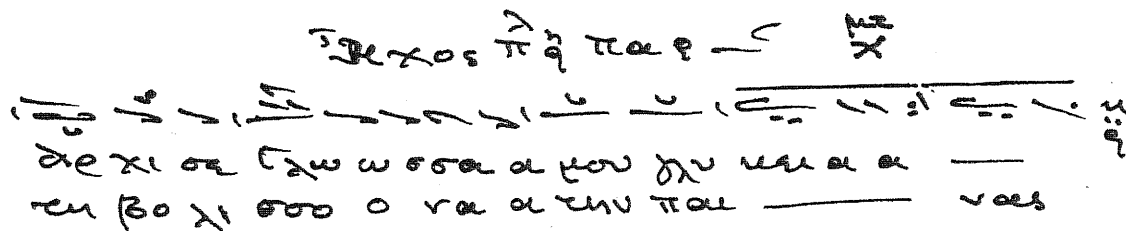 Ηχος πλ πα
αρ χι σε Γλω ω σσα α μου γλυ κεια α —
τη βο λι σσο ο να α την παι — νας